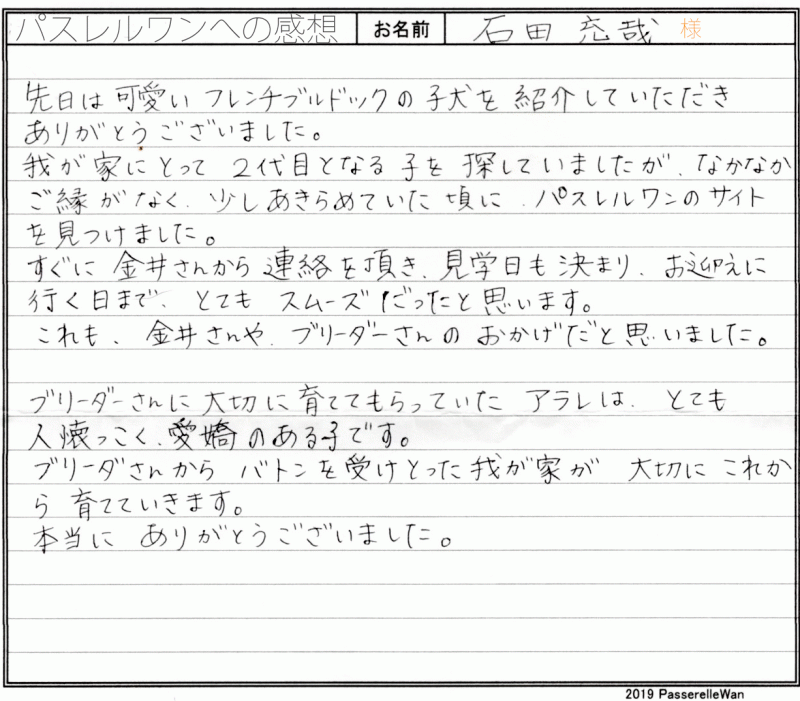 パスレルワンへの感想 お名前 石田 充哉 様
先日は可愛い フレンチブルドックの子犬を紹介していただき
ありがとうございました。
我が家にとって 2代目となる子を探していましたが、なかなか
ご縁がなく、少しあきらめていた頃に、パスレルワンのサイト
を見つけました。
すぐに 金井さんから連絡を頂き、見学日も決まり、お迎えに
行く日まで、とても スムーズだったと思います。
これも、金井さんや、ブリーダーさんの おかげだと思いました。
ブリーダーさんに大切に育ててもらっていた アラレは、とても
人懐っこく、愛嬌のある子です。
ブリーダさんから バトンを受けとった我が家が 大切に これか
ら 育てていきます。
本当に ありがとうございました。
2019 PasserelleWan